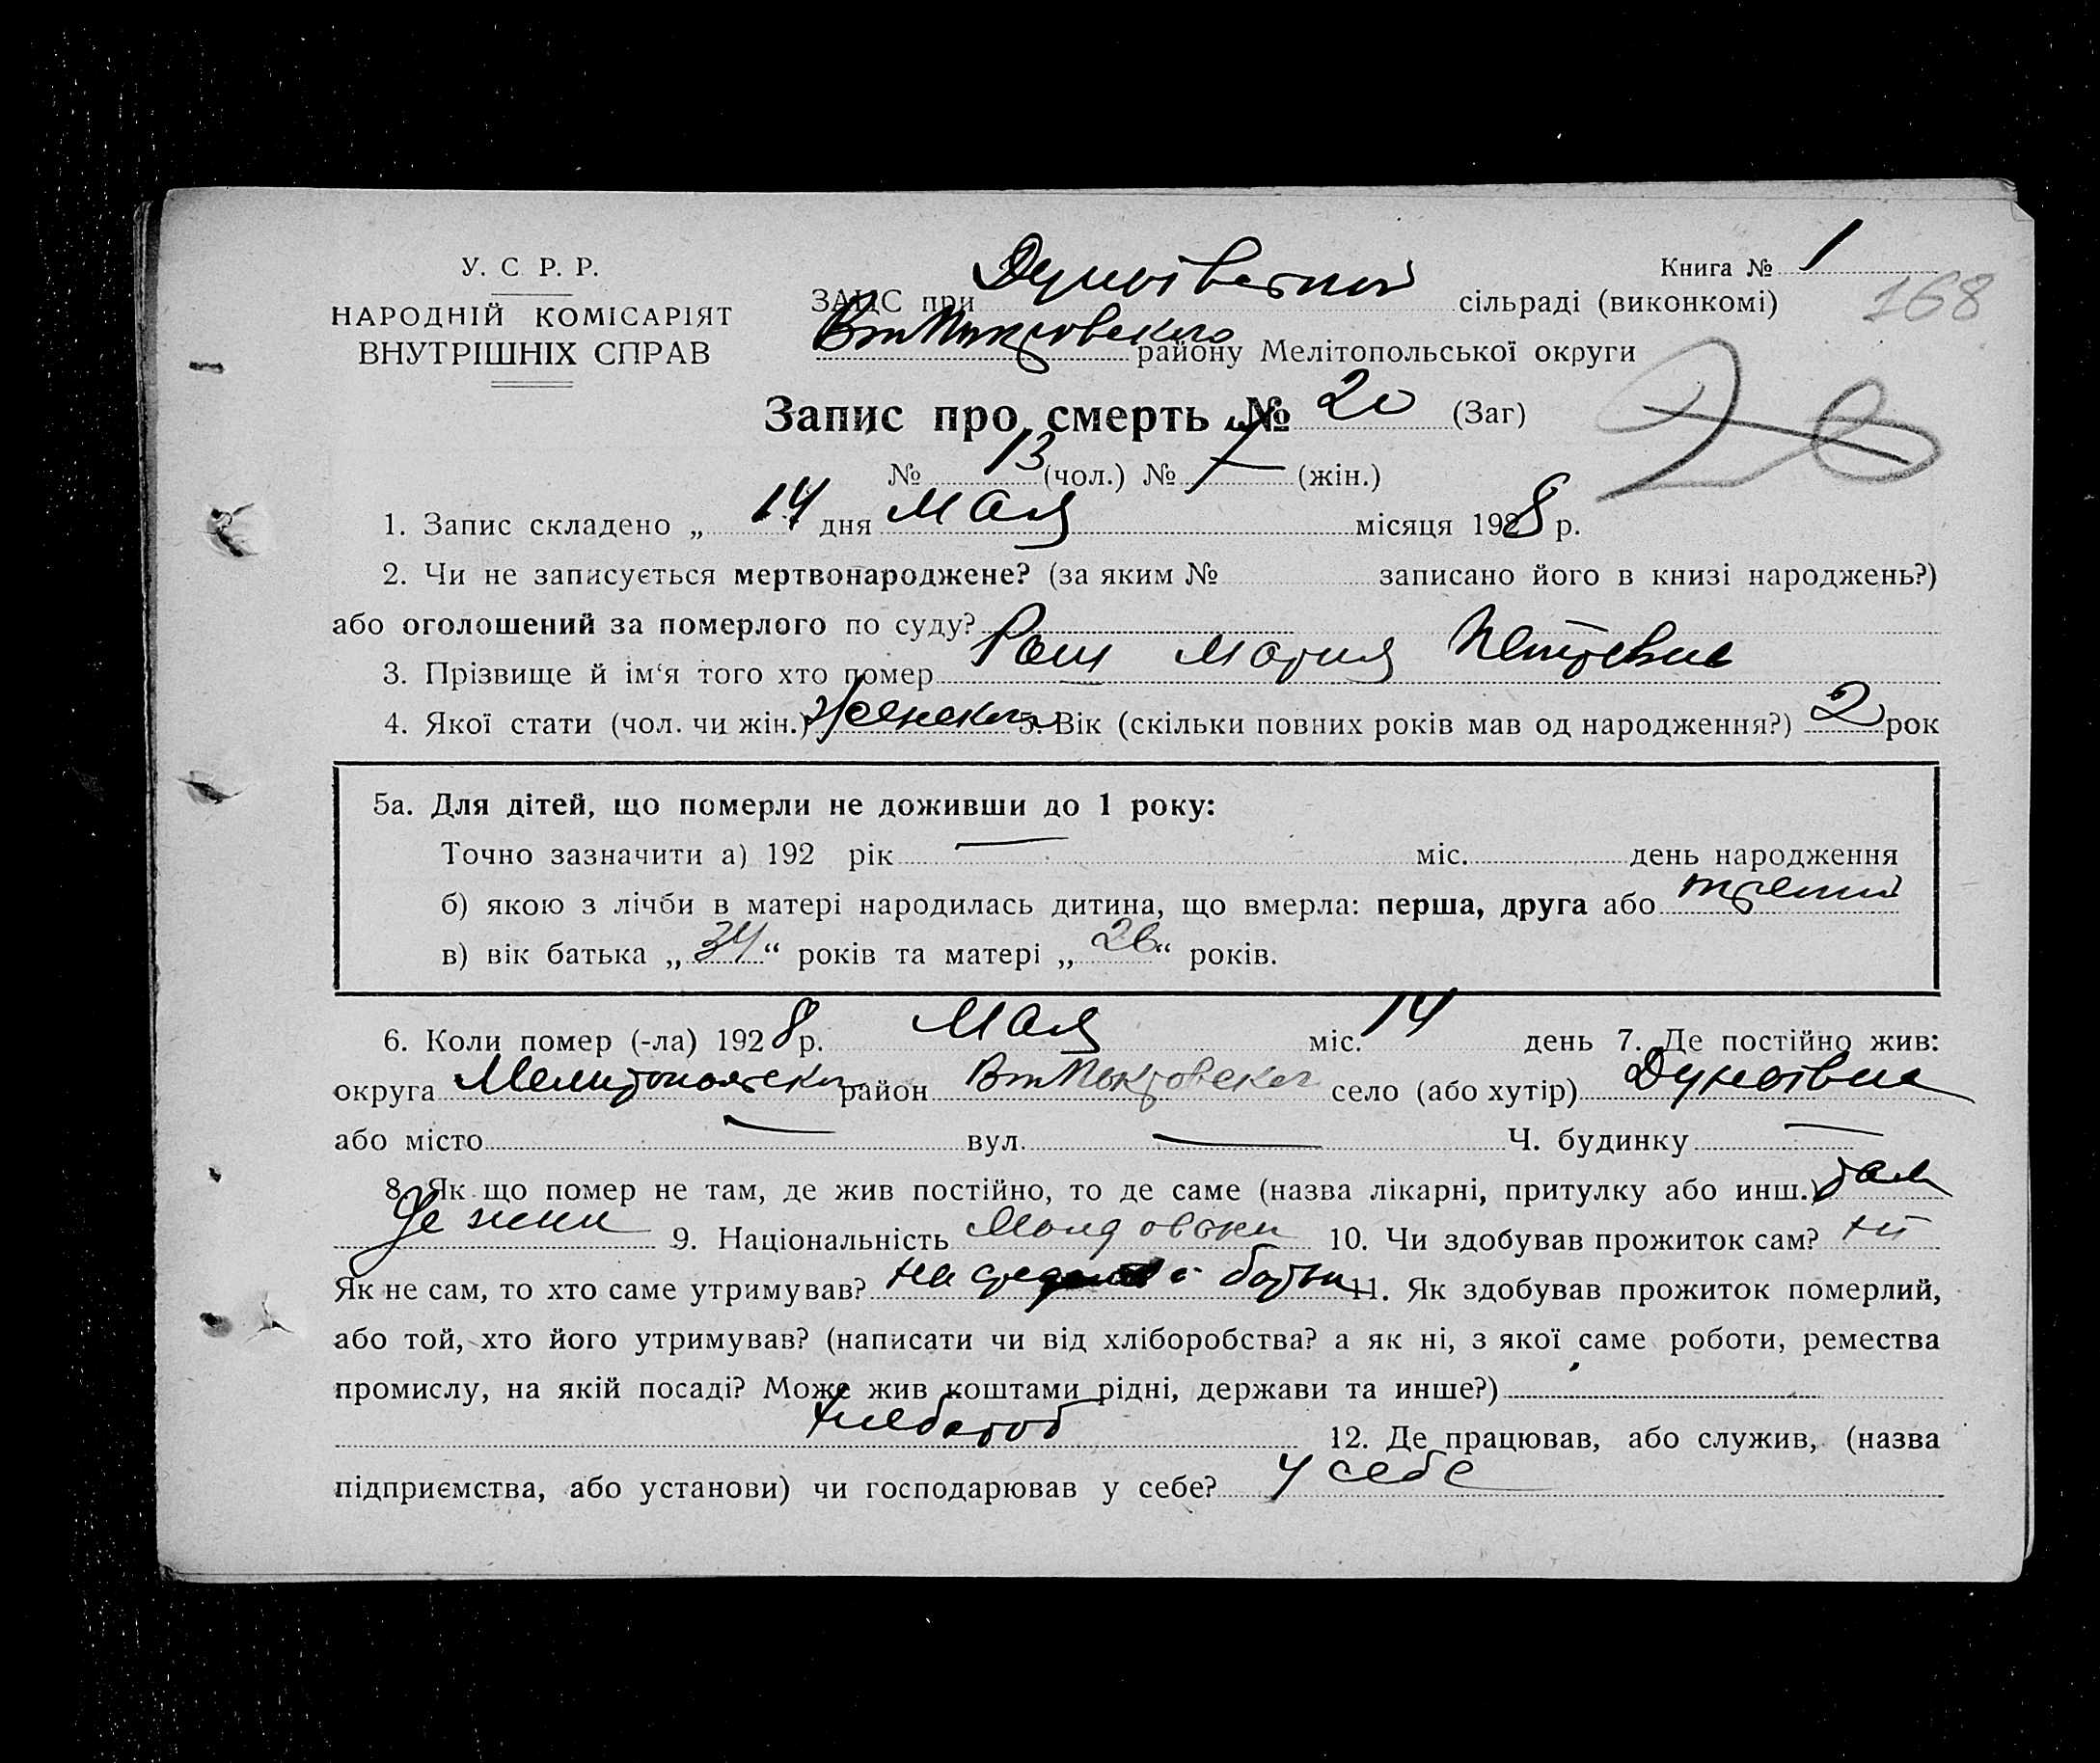 У. С. Р. Р.
НАРОДНІЙ КОМІСАРІЯТ
ВНУТРІШНІХ СПРАВ
Книга № 1
168
ЗАГС при сільраді (виконкомі)
району Мелітопольської округи
Запис про смерть № 20 (Заг)
28
№ 13 (чол.) № 7 (жін.)
1. Запис складено „ 14 дня Мая місяця 1928 р.
2. Чи не записується мертвонароджене? (за яким № записано його в книзі народжень?)
або оголошений за померлого по суду?
3. Прізвище й ім‘я того хто помер Рош Мария
4. Якої стати (чол. чи жін.) женского 5. Вік (скільки повних років мав од народження?) 2 рок
5а. Для дітей, що померли не доживши до 1 року:
Точно зазначити а) 192 рік — міс. день народження
б) якою з лічби в матері народилась дитина, що вмерла: перша, друга або третий
в) вік батька „34“ років та матері „26“ років.
6. Коли помер (-ла) 1928 р. Мая міс. 14 день 7. Де постійно жив:
округа район село (або хутір)
або місто — вул. — Ч. будинку —
8. Як що помер не там, де жив постійно, то де саме (назва лікарні, притулку або инш.) там
де жил 9. Національність 10. Чи здобував прожиток сам? ні
Як не сам, то хто саме утримував? на 11. Як здобував прожиток померлий,
або той, хто його утримував? (написати чи від хліборобства? а як ні, з якої саме роботи, ремества
промислу, на якій посаді? Може жив коштами рідні, держави та инше?)
хлебороб 12. Де працював, або служив, (назва
підприємства, або установи) чи господарював у себе? у себе